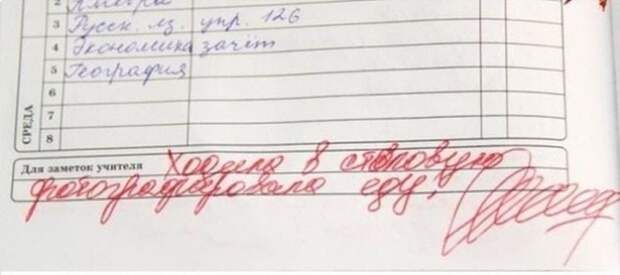 2 Алгебра
3 Русск. яз. упр. 126
4 Экономика зачіт
5 География
6
7
8
СРЕДА
Для заметок учителя
Ходила в столовую
фотографировала еду.